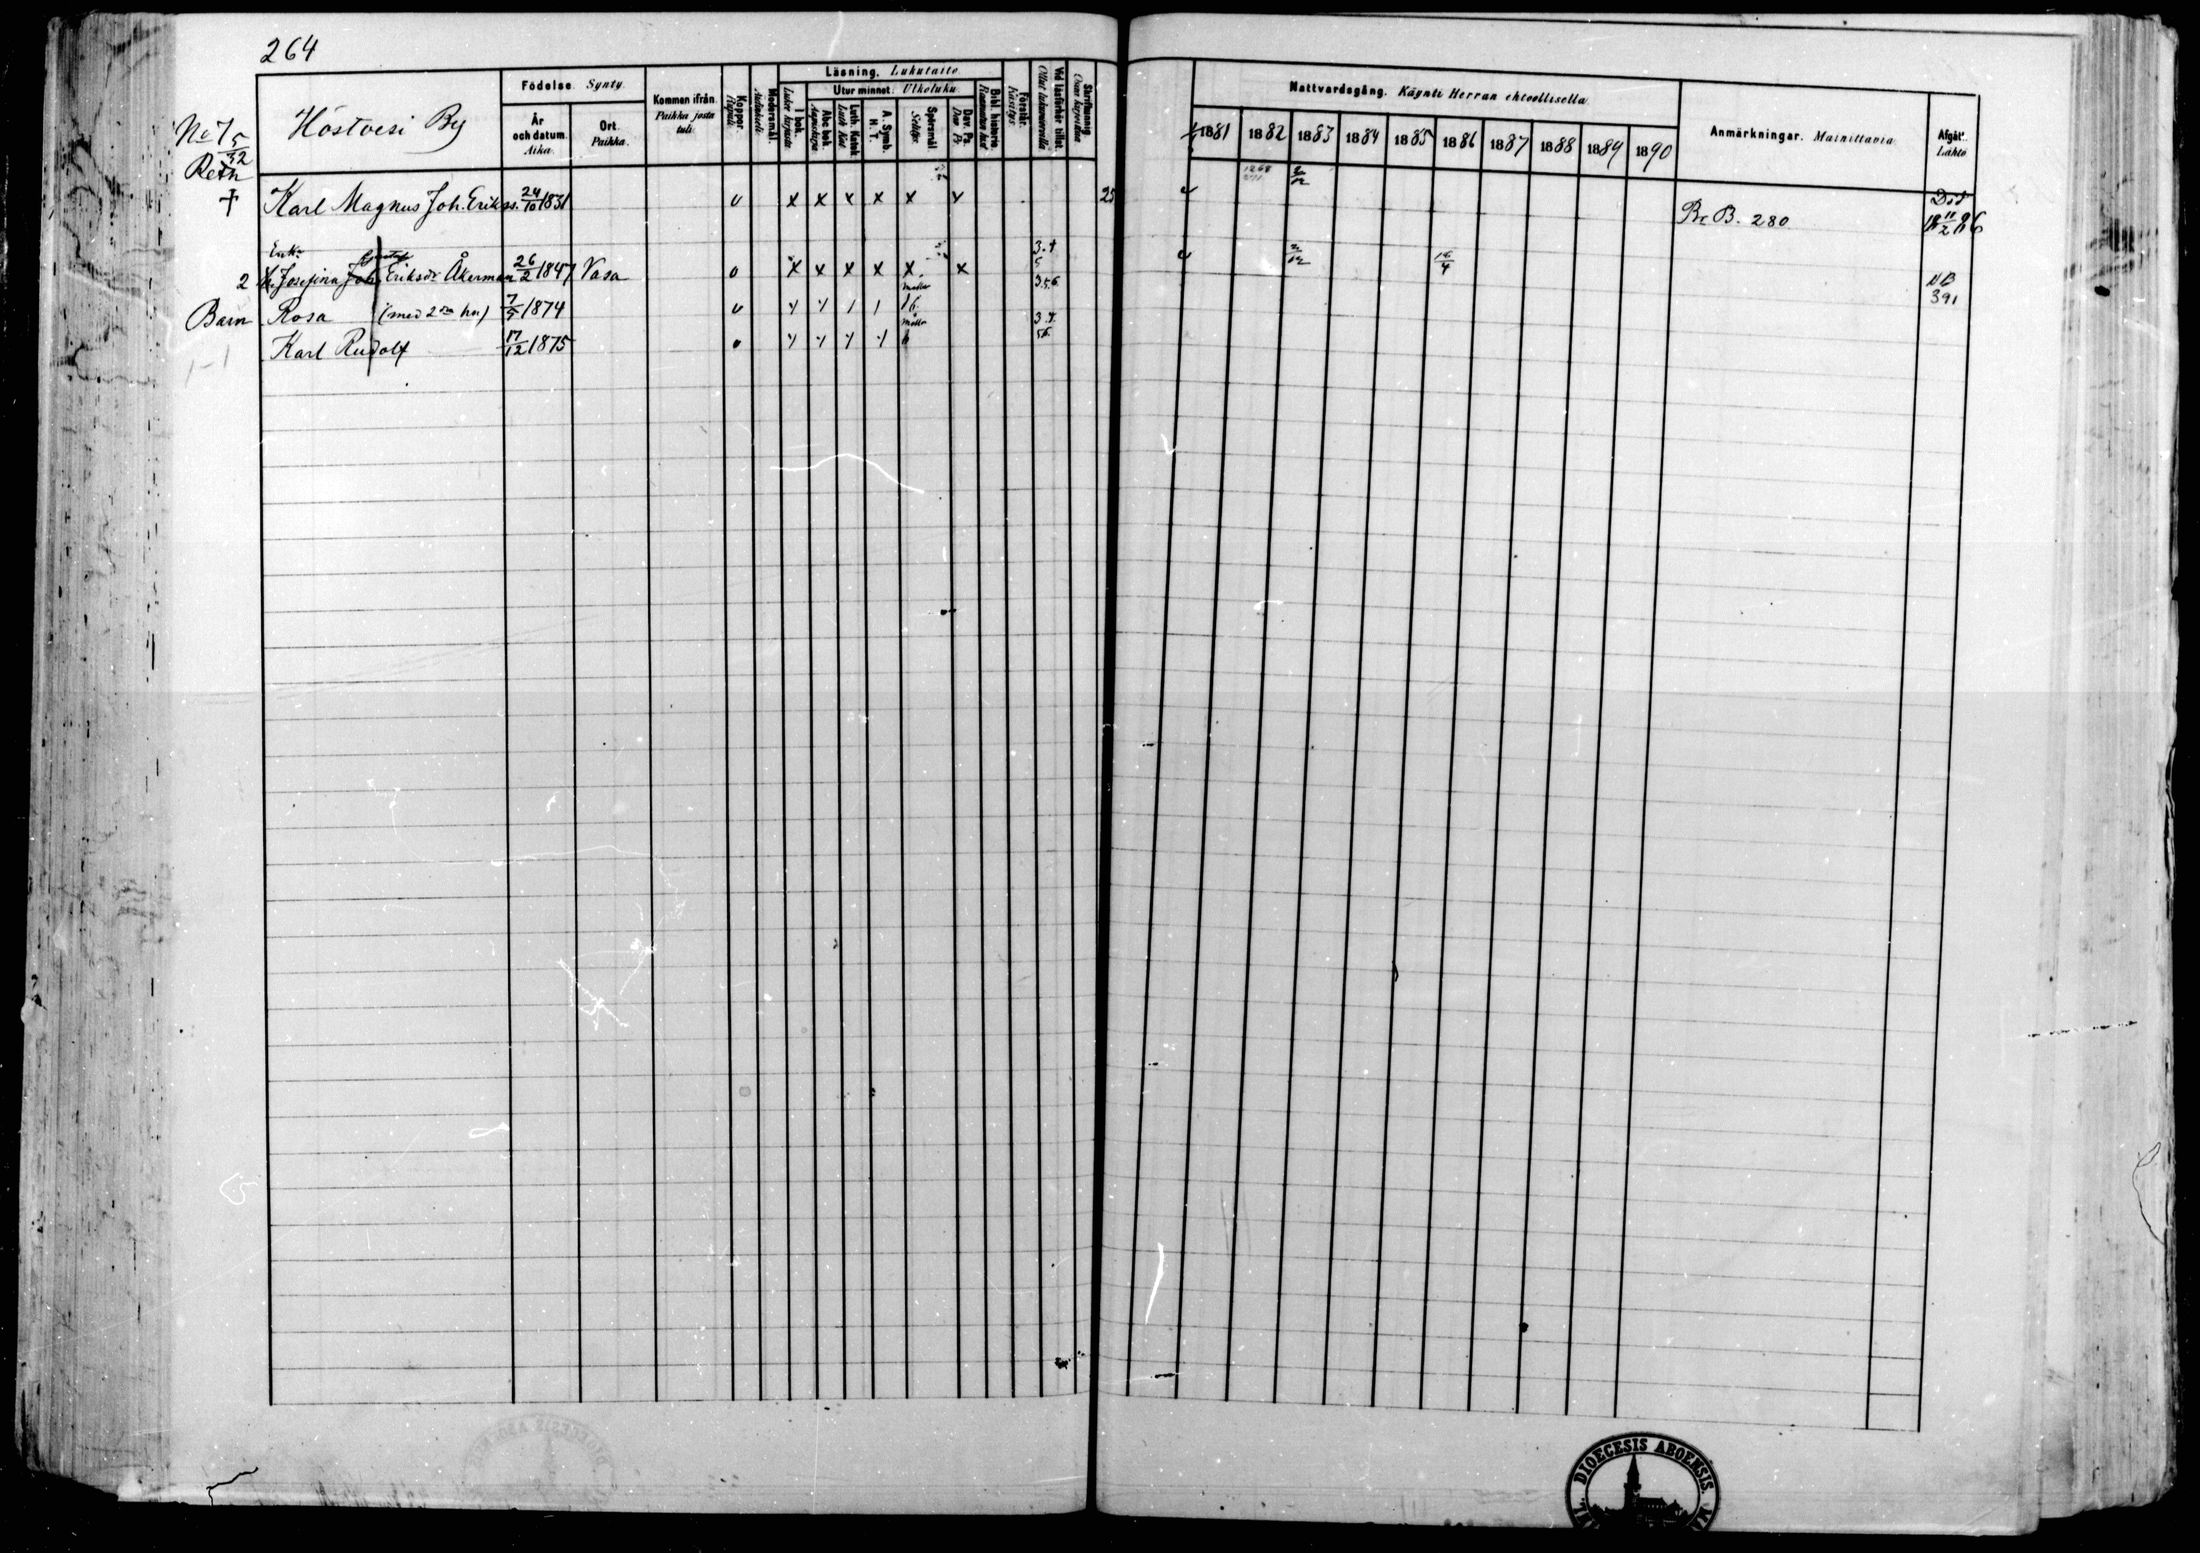 264
Höstvesi By
No 7 5/32
Födelse. Synty.
År och datum. Aika.
Ort. Paikka.
Kommen ifrån. Paikka josta tuli.
Koppor. Rupuli.
Modersmål. Äidinkieli.
Läsning. Lukutaito.
I bok. Lukee kirjasta.
Utur minnet. Ulkoluku.
Abc bok. Aapiskirja.
Luth. Katek. Luth. Kat.
A. Symb. H. T.
Spörsmål. Selitys.
Dav. Ps. Dav. Ps.
Bibl. historie
Förstår. Käsitys.
Vid läsförhör tillst. Ollut lukusioilla
Skriftkunnig. Osaa kirjoittaa
Nattvardsgång. Käynti Herran ehtoollisella.
1881 1882 1883 1884 1885 1886 1887 1888 1889 1890
Anmärkningar. Mainittavia
Afgått. Lähtö
† Karl Magnus Joh. Erikss. 24/10 1831 v x x x x x x 25
Br B. 280
Död 18 11/2 86
Enk.
2 Josefina Eriksdr Åkerman 26/2 1847 Vasa x x x x x x
3.4 5
16/4
NB 391
Barn Rosa (med 2dra hu) 7/5 1874 v
3.5.6.
Karl Rudolf 17/12 1875
3.4. 56.
DIOECESIS ABOENSIS.